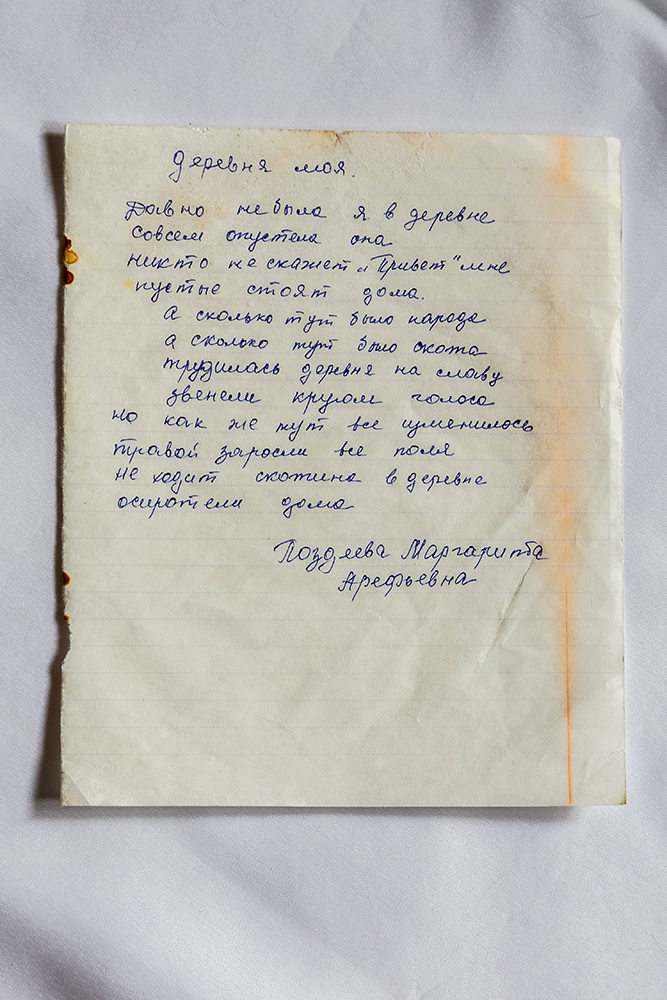 Деревня моя.
Давно не была я в деревне
совсем опустела она
никто не скажет „Привет" мне
пустые стоят дома.
А сколько тут было народа
а сколько тут было скота
трудилась деревня на славу
звенели кругом голоса
но как же тут все изменилось
травой заросли все поля
не ходит скотина в деревне
осиротели дома
Поздеева Маргарита
Арефьевна